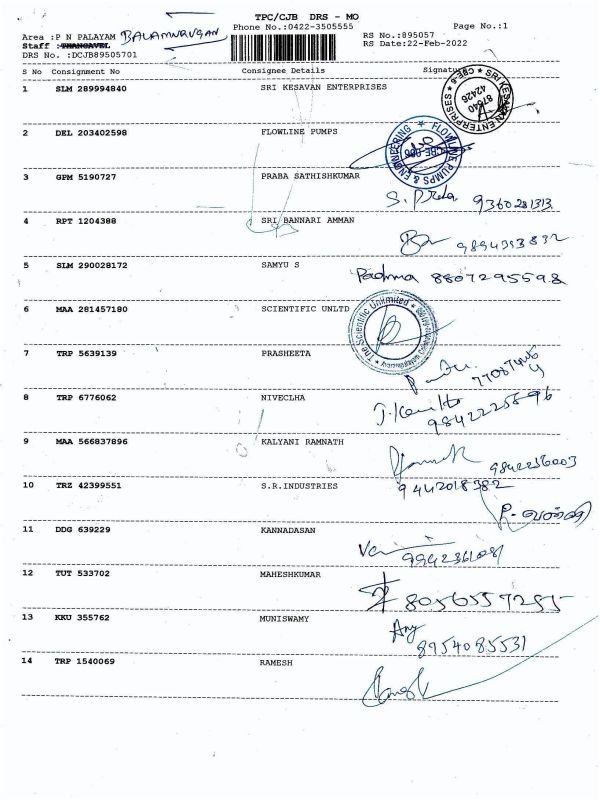 TPC/CJB DRS - MO
Phone No.:0422-3505555 Page No.:1
Area :P N PALAYAM BALAMURUGAN RS No.:895057
Staff :THANGAVEL RS Date:22-Feb-2022
DRS No. :DCJB89505701
S No Consignment No Consignee Details Signature
1 SLM 289994840 SRI KESAVAN ENTERPRISES
2 DEL 203402598 FLOWLINE PUMPS
FLOWLINE PUMPS & ENGINEERING
3 GPM 5190727 PRABA SATHISHKUMAR
9360281313
4 RPT 1204388 SRI BANNARI AMMAN
9894353832
5 SLM 290028172 SAMYU S
Padma 8807295598
6 MAA 281457180 SCIENTIFIC UNLTD
The Scientific Unlimited
7 TRP 5639139 PRASHEETA
8 TRP 6776062 NIVECLHA
9842225896
9 MAA 566837896 KALYANI RAMNATH
9842256003
10 TRZ 42399551 S.R.INDUSTRIES
9442018382
11 DDG 639229 KANNADASAN
12 TUT 533702 MAHESHKUMAR
8056557255
13 KKU 355762 MUNISWAMY
8954085531
14 TRP 1540069 RAMESH